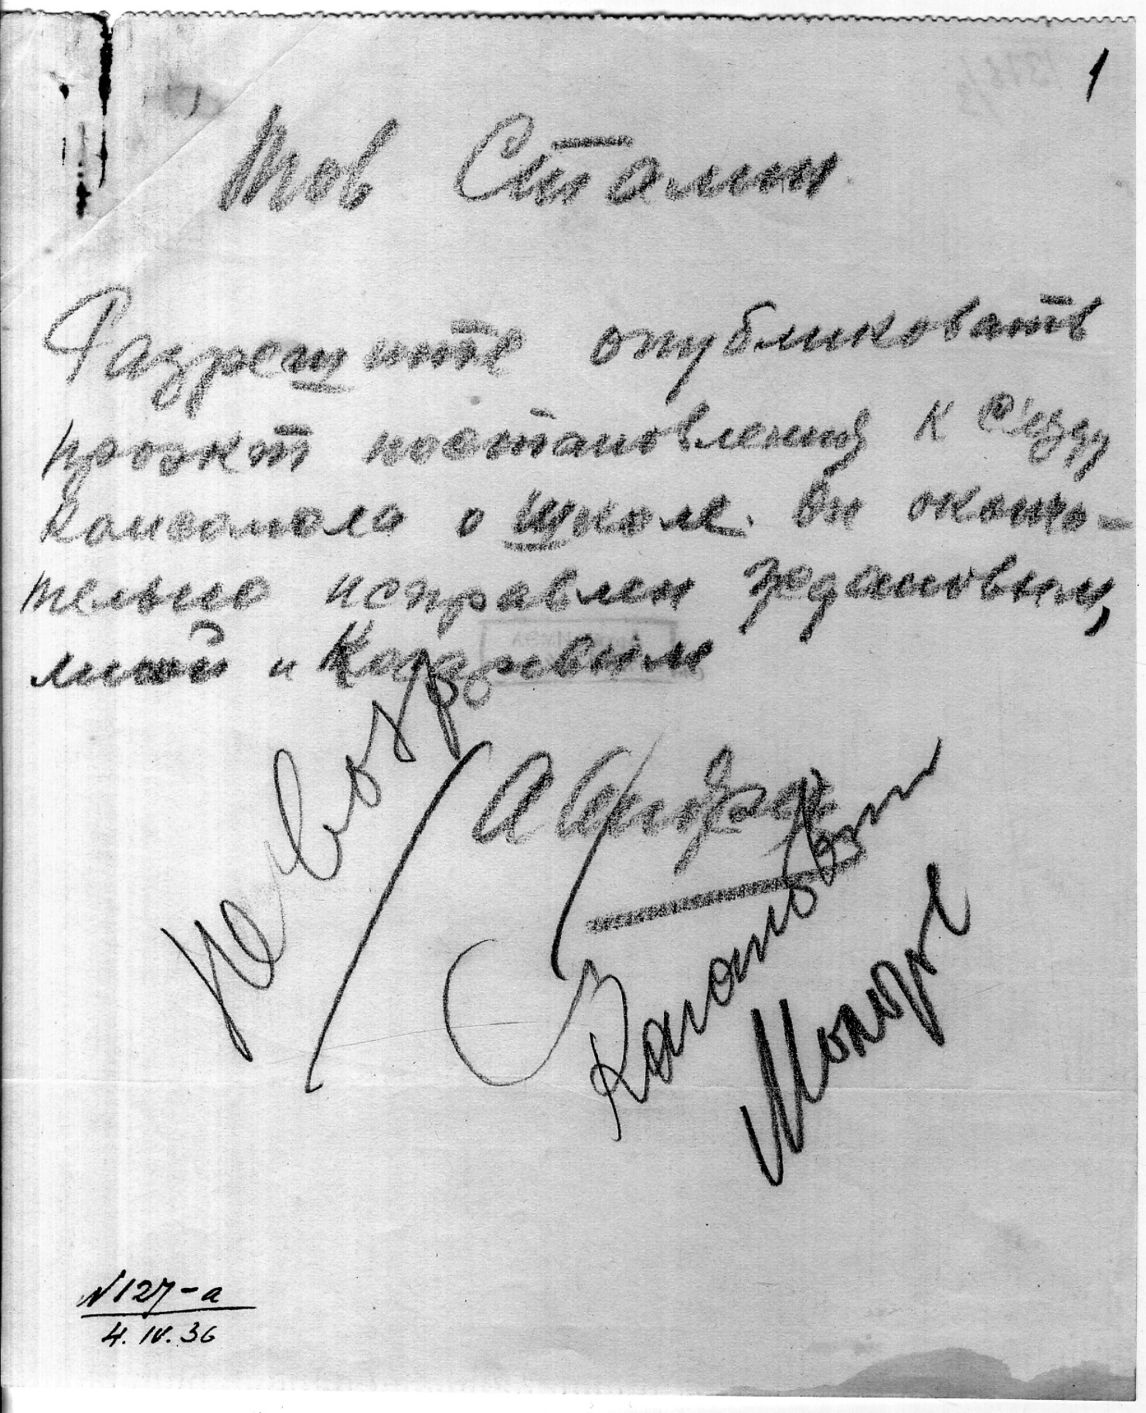 1
Тов Сталин
Разрешите опубликовать
проэкт постановления к с'езду
Комсомола о школе. Он оконча-
тельно исправлен Ждановым,
мной и Косаревым
А Андреев
Не возр
Каганович
Молотов
N127-а
4.IV.36